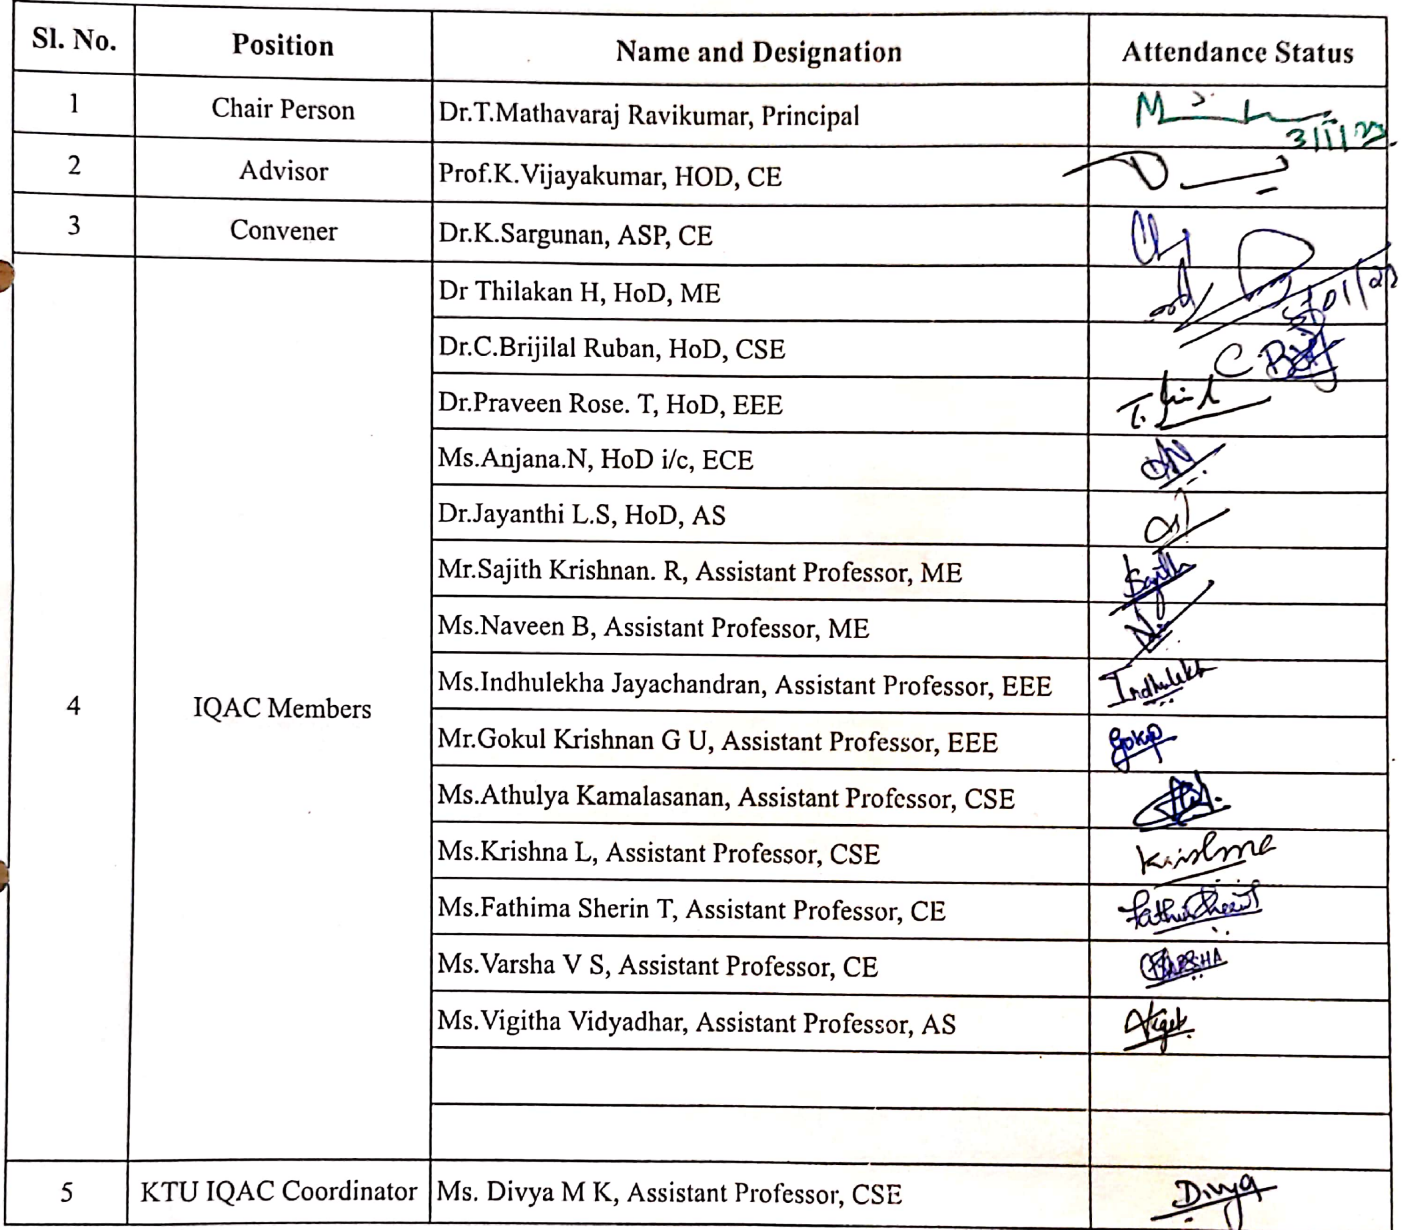 Sl. No. Position Name and Designation Attendance Status
1 Chair Person Dr.T.Mathavaraj Ravikumar, Principal
2 Advisor Prof.K.Vijayakumar, HOD, CE
3 Convener Dr.K.Sargunan, ASP, CE
Dr Thilakan H, HoD, ME
Dr.C.Brijilal Ruban, HoD, CSE
Dr.Praveen Rose. T, HoD, EEE
Ms.Anjana.N, HoD i/c, ECE
Dr.Jayanthi L.S, HoD, AS
Mr.Sajith Krishnan. R, Assistant Professor, ME Sajith
Ms.Naveen B, Assistant Professor, ME
4 IQAC Members Ms.Indhulekha Jayachandran, Assistant Professor, EEE Indhulekh
Mr.Gokul Krishnan G U, Assistant Professor, EEE
Ms.Athulya Kamalasanan, Assistant Professor, CSE
Ms.Krishna L, Assistant Professor, CSE Krishna
Ms.Fathima Sherin T, Assistant Professor, CE
Ms.Varsha V S, Assistant Professor, CE
Ms.Vigitha Vidyadhar, Assistant Professor, AS
5 KTU IQAC Coordinator Ms. Divya M K, Assistant Professor, CSE Divya